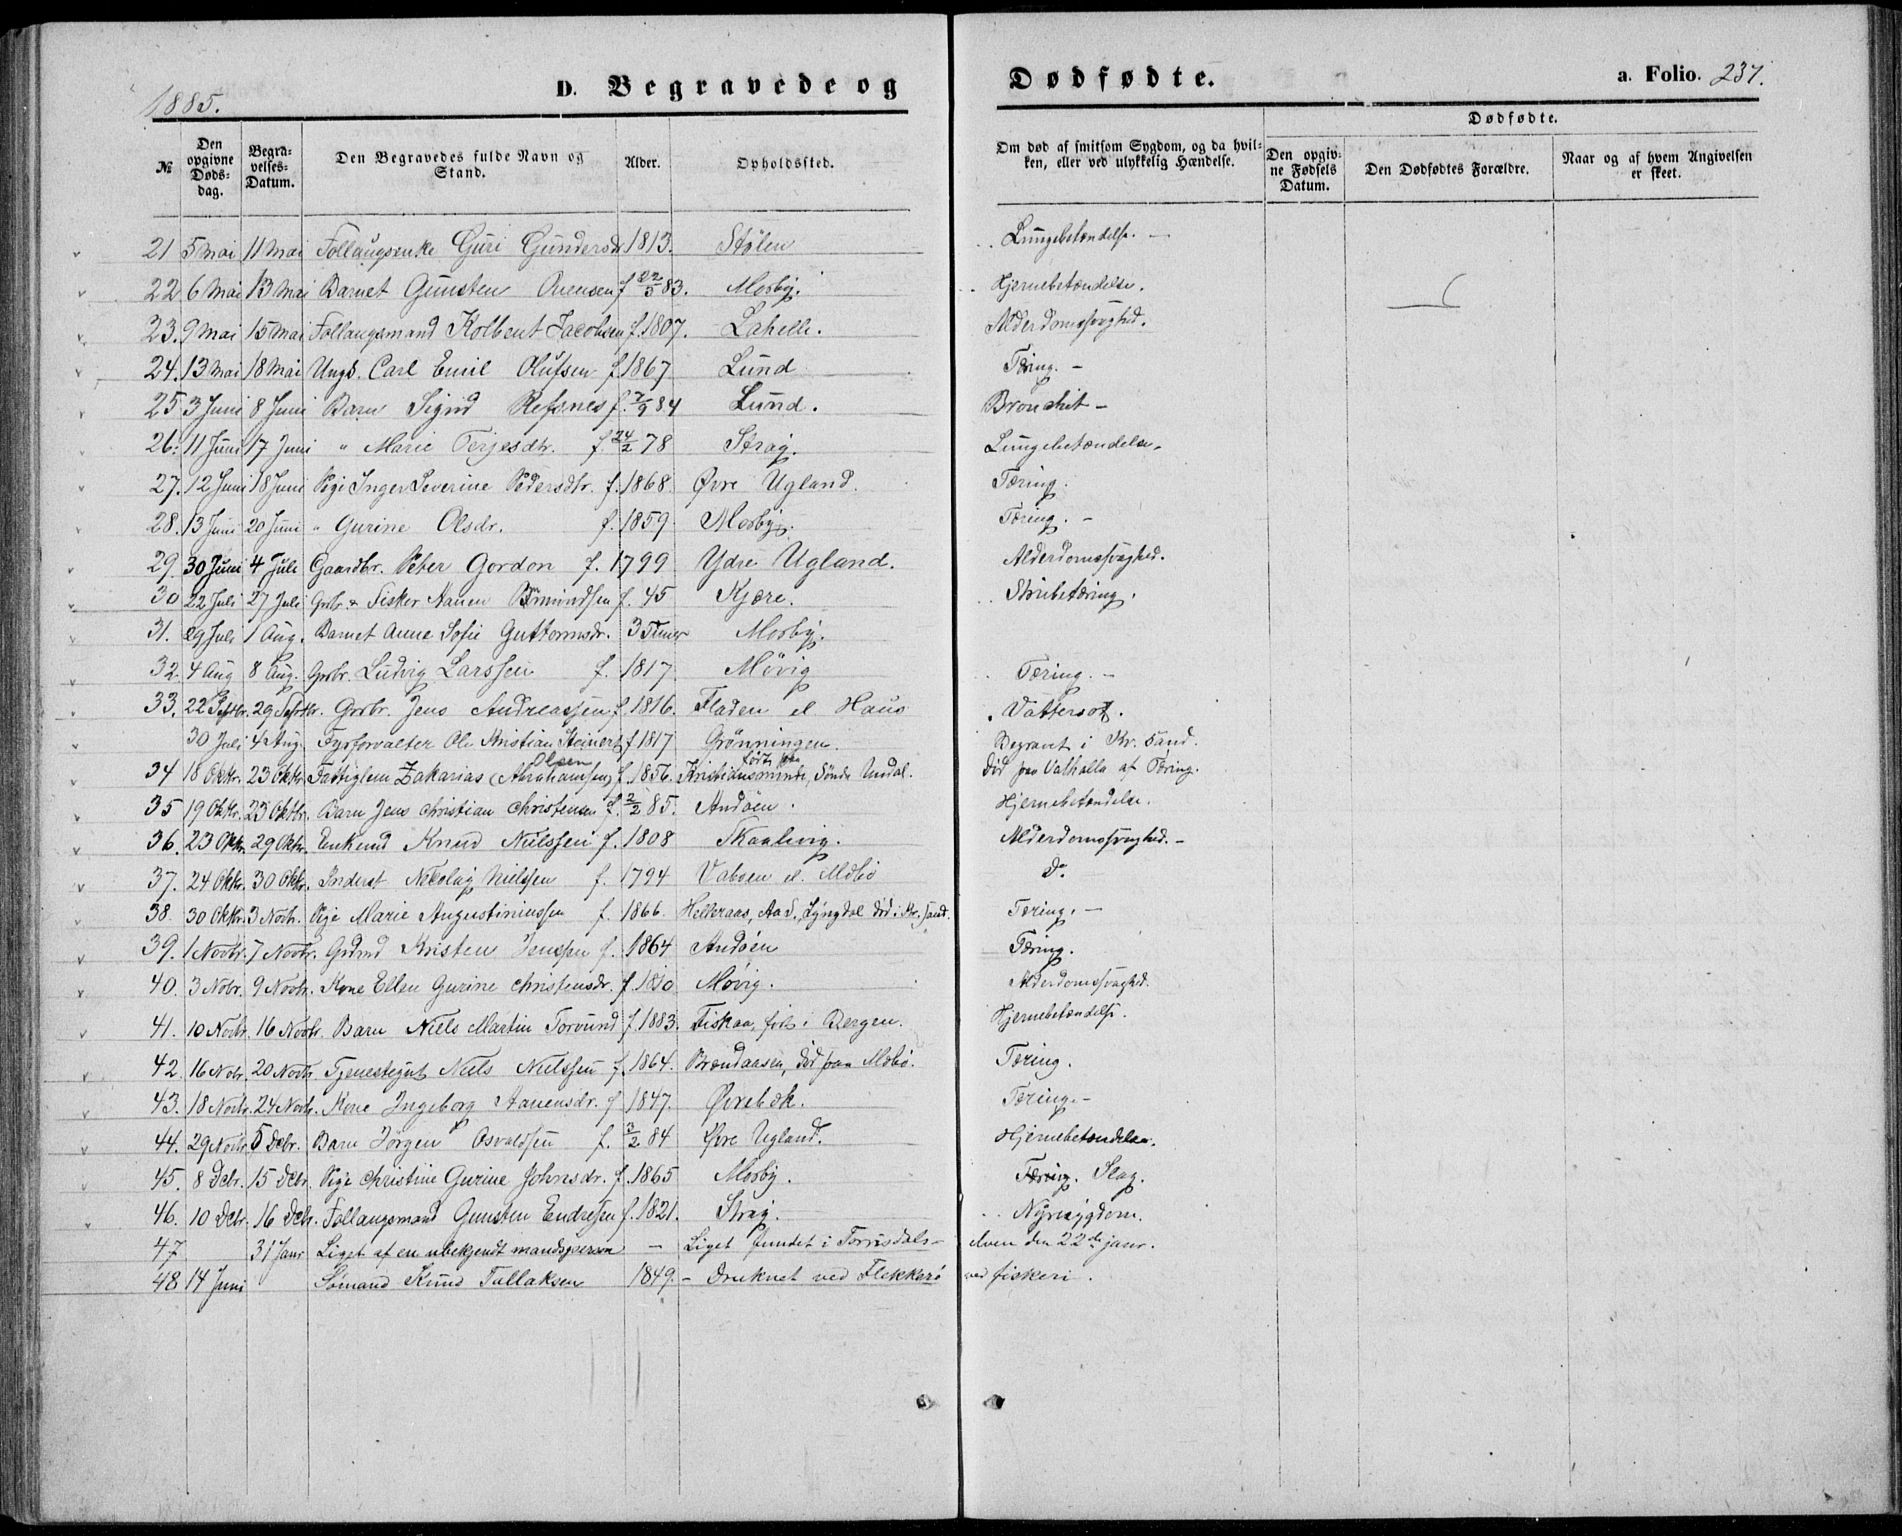 1885.
D. Begravede og Dødfødte.
a. Folio. 237.
№
Den opgivne Dødsdag.
Begravelses-Datum.
Den Begravedes fulde Navn og Stand.
Alder.
Opholdssted.
Om død af smitsom Sygdom, og da hvilken, eller ved ulykkelig Hændelse.
Dødfødte.
Den opgivne Fødsels Datum.
Den Dødfødtes Forældre.
Naar og af hvem Angivelsen er skeet.
21 5 Mai 11 Mai Follaugsenke Guri Gundersdr 1813. Stølen Lungebetændelse. —
22 6 Mai 13 Mai Barnet Gunsten Avensen f 22/5 83. Mosby. Hjernebetændelse.
23. 9 Mai 15 Mai Follaugsmand Kolbent Jacobsen f. 1807. Lahelle. Alderdomssvaghed.
24. 13 Mai 18 Mai Ungk. Carl Emil Olufsen f 1867 Lund Tæring. –
25 3 Juni 8 Juni Barn Sigrid Refsnes f. 7/9 84 Lund. Bronchit –
26. 11 Juni 17 Juni " Marie Terjesdtr. f. 24/2 78 Strag. Lungebetændelse.
27. 12 Juni 18 Juni Pige Inger Severine Pedersdtr. f. 1868. Øvre Ugland. Tæring.
28. 13 Juni 20 Juni " Gurine Olsdr. f. 1859. Mosby. Tæring. –
29. 30 Juni 4 Juli Gaardbr. Peter Gordon f. 1799 Ydre Ugland. Alderdomssvaghed.
30 22 Juli 27 Juli Grbr. & Fisker Aanen Omundsen f. 45 Kjære. Strubetæring.
31. 29 Juli 1 Aug. Barnet Anne Sofie Guttormsdr. 3 Timer Mosby.
32. 4 Aug 8 Aug. Grbr. Ludvig Larssen f. 1817 Møvig Tæring. –
33. 22 Septbr. 29 Septbr. Grbr. Jens Andreassen f. 1816. Fladen el. Haus Vattersot.
30 Juli 4 Aug. Fyrforvalter Ole Kristian Steinert f 1817 Grønningen. Begravet i Kr. Sand.
34 18 Oktbr. 23 Oktbr Fattiglem Zakarias (Abrahamsen) Olsen f. 1856. Kristiansminde, født paa Søndre Undal. død paa Valhalla af Tæring.
35 19 Oktbr. 23 Oktbr. Barn Jens Christian Christensen f. 2/2 85. Andøen. Hjernebetændelse.
36. 23 Oktbr. 29 Oktbr. Enkemd Knud Nielssen f. 1808 Skaalevig. Alderdomssvaghed. –
37. 24 Oktbr. 30 Oktbr. Inderst Nicolay Nielssen f. 1794 Vaboen el. Mebø Do
38. 30 Oktbr. 3 Novbr. Pige Marie Augustiniussen f. 1866. Helleraas, Aa S., Lyngdal død i Kr. Sand. Tæring. –
39. 1 Novbr. 7 Novbr. Kristen Jenssen f. 1864 Andøen Tæring.
40. 3 Nobr. 9 Novbr. Kone Ellen Gurine Christensdr. f. 1810 Møvig. Alderdomssvaghed.
41. 10 Novbr. 16 Novbr. Barn Niels Martin Torvund f. 1883. Fiskaa, født i Bergen. Hjernebetændelse.
42. 16 Nobr. 20 Novbr Tjenestegut Niels Nielssen f. 1864. Brændaasen, død paa Mebø. Tæring.
43. 18 Novbr. 24 Novbr. Kone Ingeborg Aanensdr. f 1847. Øvrebøk. Tæring. –
44. 29 Novbr 5 Decbr. Barn Jørgen Osvaldsen f. 3/2 84 Øvre Ugland. Hjernebetændelse.
45. 8 Decbr. 15 Decbr. Pige Christine Gurine Johnsdr. f. 1865 Mosby. Tæring. Slag.
46. 10 Decbr. 16 Decbr. Follaugsmand Gunsten Endresen f. 1821. Strag. Nyresygdom.
47 31 Janr Liget af en ubekjendt mandsperson — Liget fundet i Torrisdals- elven den 22de janr.
48 14 Juni Sømand Knud Tallaksen 1849. – Druknet ved Flekkerø ved fiskeri.